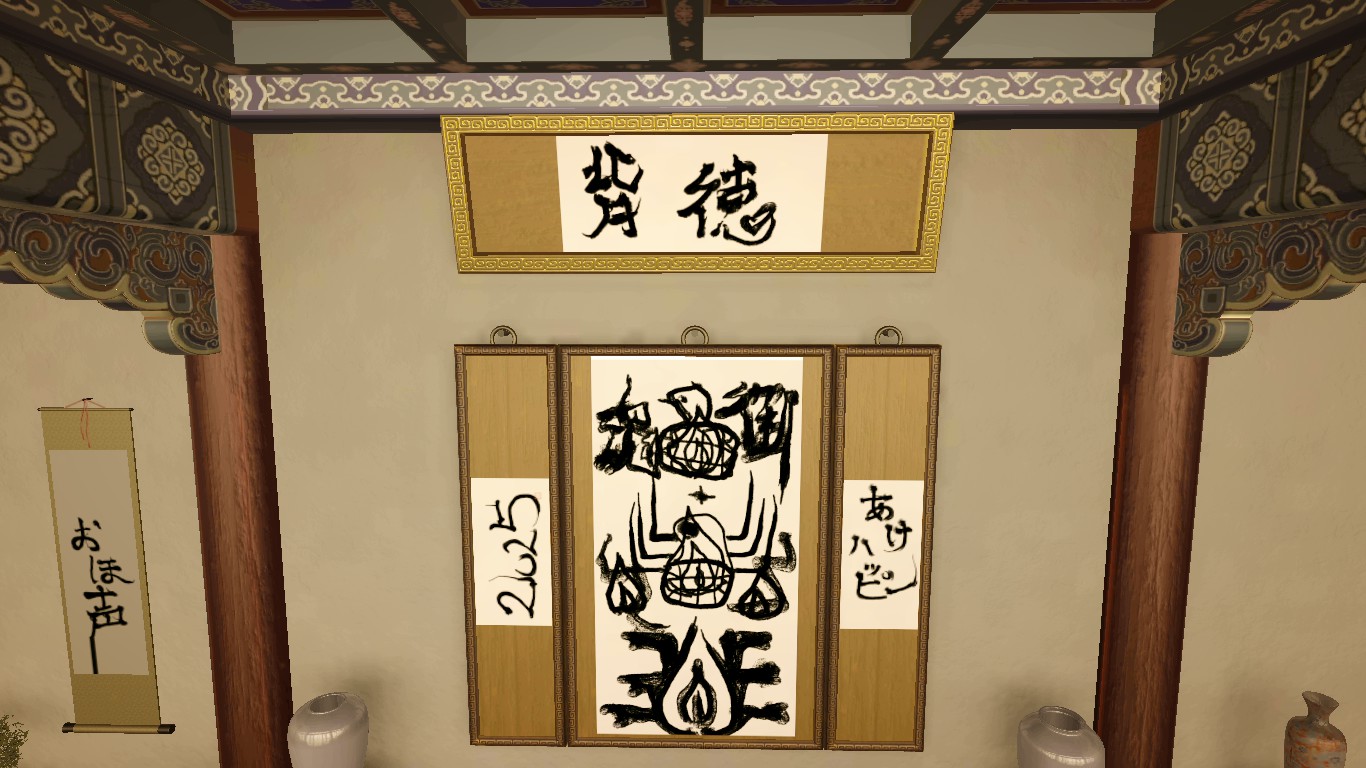 背徳
あけ
ハッピー
2025
おほ声